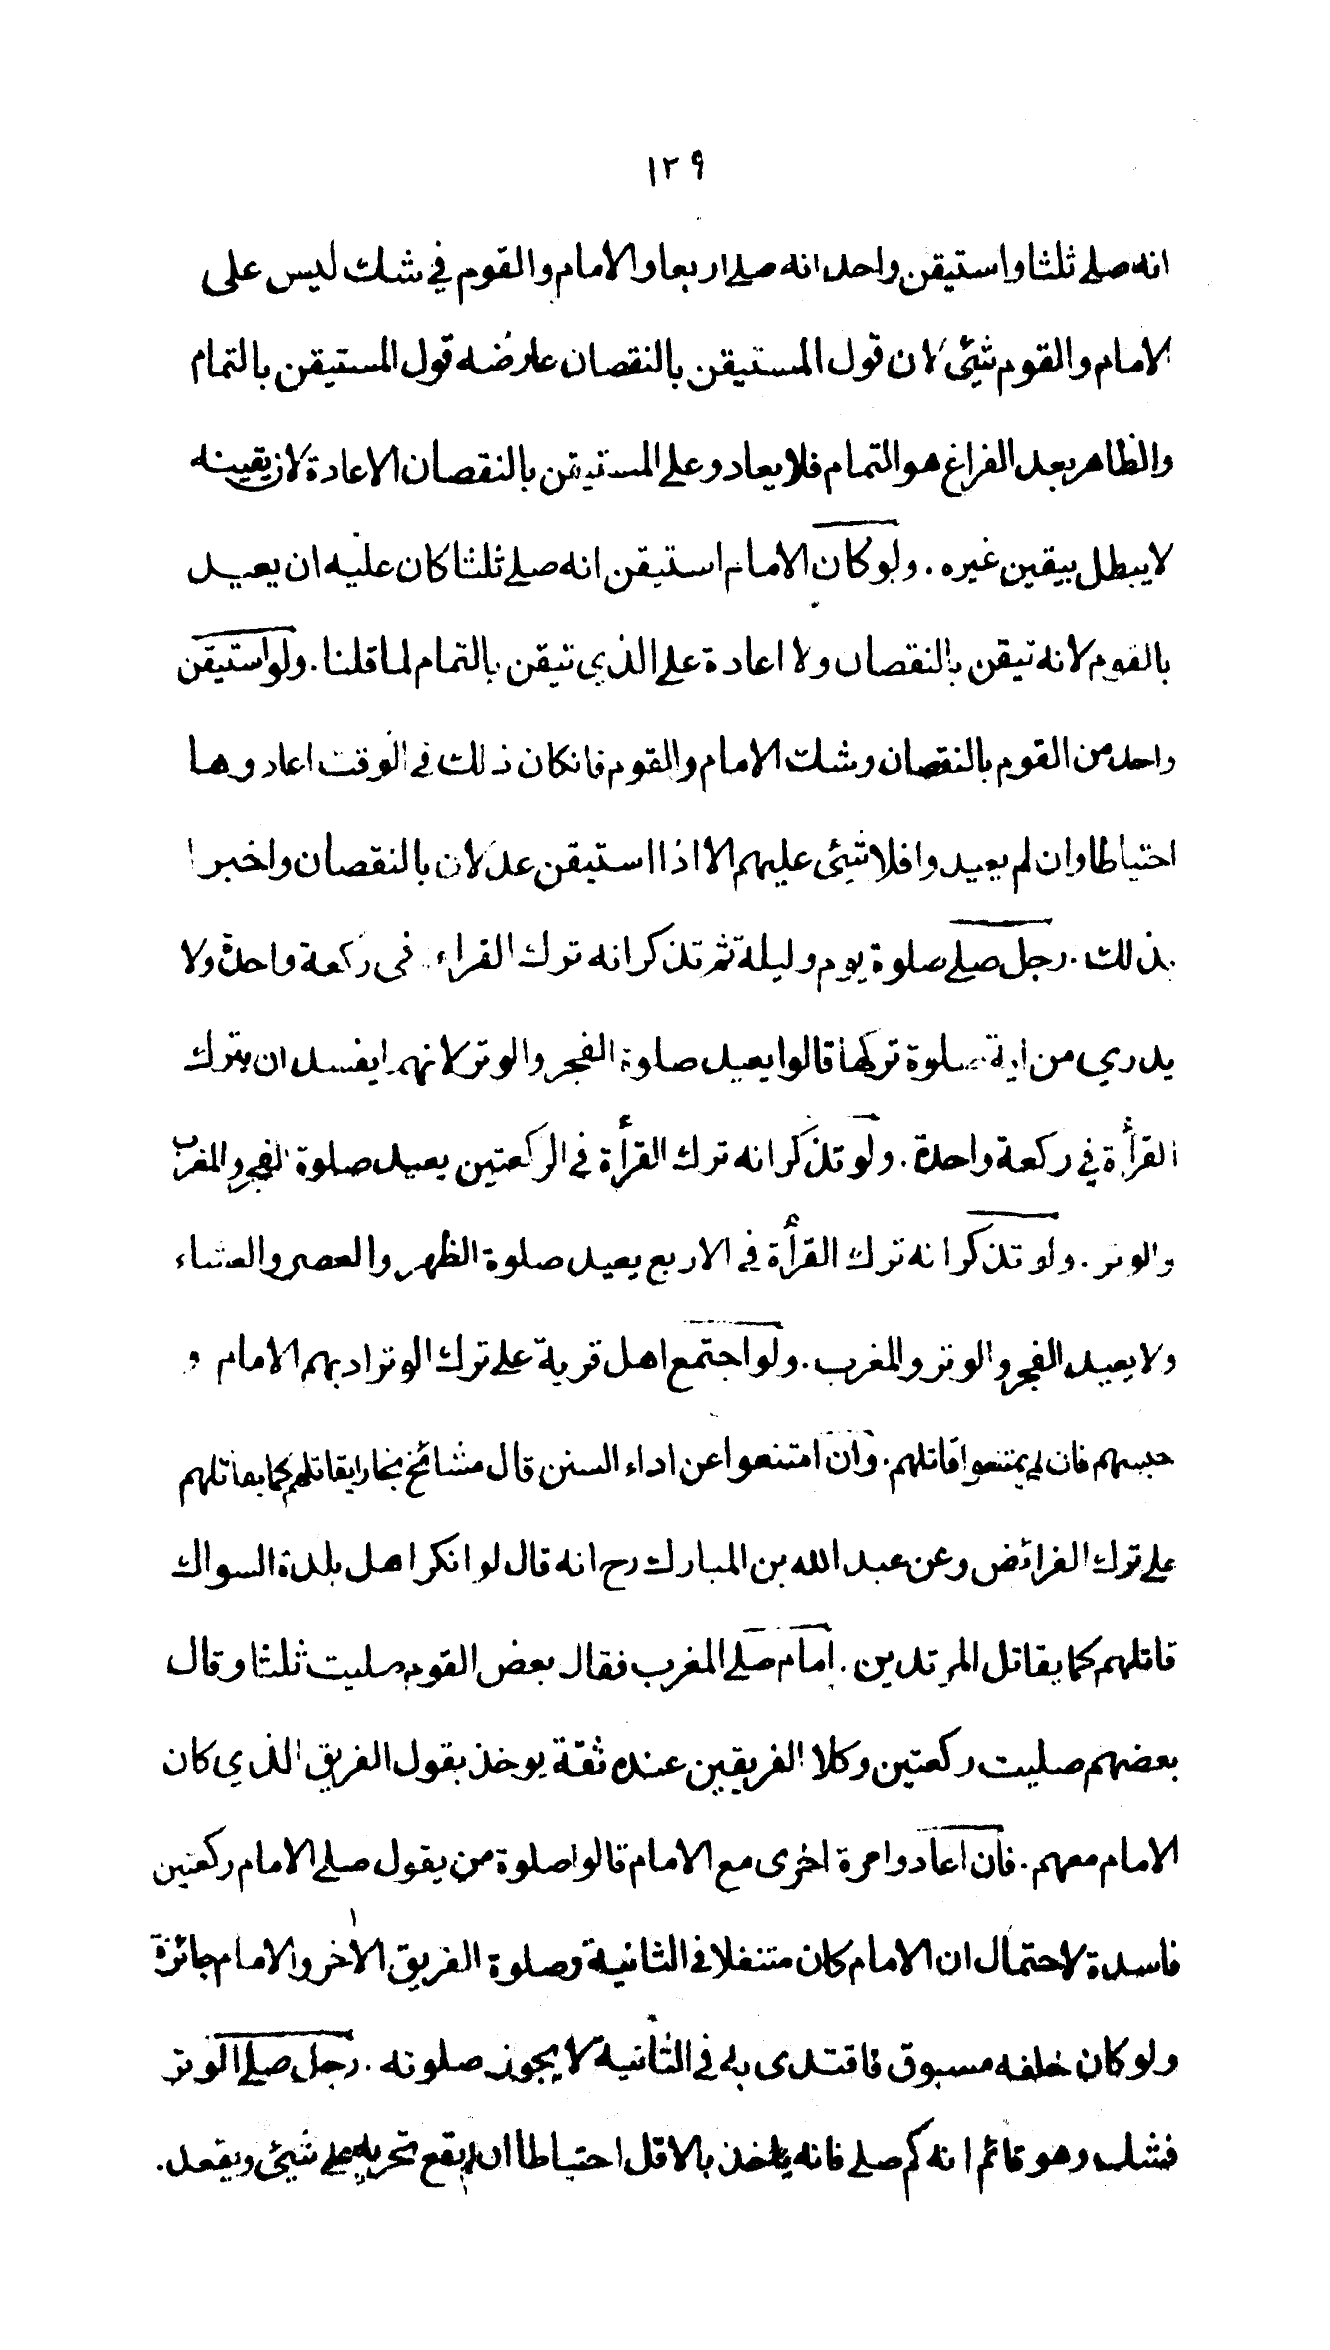 ١٢٩
انه صلے ثلثا واستيقن واحد انه صلے اربعا والامام والقوم فی شك ليس علی
الامام والقوم شیٔ لان قول المستيقن بالنقصان عارضه قول المستيقن بالتمام
والظاهر بعد الفراغ هو التمام فلا يعاد وعلے المستيقن بالنقصان الاعادة لان يقينه
لا يبطل بيقين غيره . ولو كان الامام استيقن انه صلے ثلثا كان عليه ان يعيد
بالقوم لانه تيقن بالنقصان ولا اعادة علے الذي تيقن بالتمام لما قلنا . ولو استيقن
واحد من القوم بالنقصان وشك الامام والقوم فانكان ذلك فی الوقت اعادوها
احتياطا وان لم يعيدوا فلا شیٔ عليهم الا اذا استيقن عدلان بالنقصان واخبرا
بذلك . رجل صلے صلوة يوم وليلة ثم تذكر انه ترك القراء فی ركعة واحدة ولا
يدري من اية صلوة تركها قالوا يعيد صلوة الفجر والوتر لانهما يفسدان بترك
القرأة فی ركعة واحدة . ولو تذكر انه ترك القرأة فی الركعتين يعيد صلوة الفجر والمغرب
والوتر . ولو تذكر انه ترك القرأة فی الاربع يعيد صلوة الظهر والعصر والعشاء
ولا يعيد الفجر والوتر والمغرب . ولو اجتمع اهل قرية علے ترك الوتر ادبهم الامام و
حبسهم فان لم يمتنعوا قاتلهم . وان امتنعوا عن اداء السنن قال مشائخ بخارا يقاتلهم كما يقاتلهم
علے ترك الفرائض وعن عبد الله بن المبارك رح انه قال لو انكر اهل بلدة السواك
قاتلهم كما يقاتل المرتدين . امام صلے المغرب فقال بعض القوم صليت ثلثا وقال
بعضهم صليت ركعتين وكلا الفريقين عنده ثقة يوخذ بقول الفريق الذي كان
الامام معهم . فان اعادوا مرة اخری مع الامام قالوا صلوة من يقول صلے الامام ركعتين
فاسدة لاحتمال ان الامام كان متنفلا فی الثانية وصلوة الفريق الاخر والامام جائزة
ولو كان خلفه مسبوق فاقتدی به فی الثانية لا يجوز صلوته . رجل صلے الوتر
فشك وهو قائم انه كم صلے فانه ياخذ بالاقل احتياطا ان لم يقع تحريه علے شیٔ ويقعد .